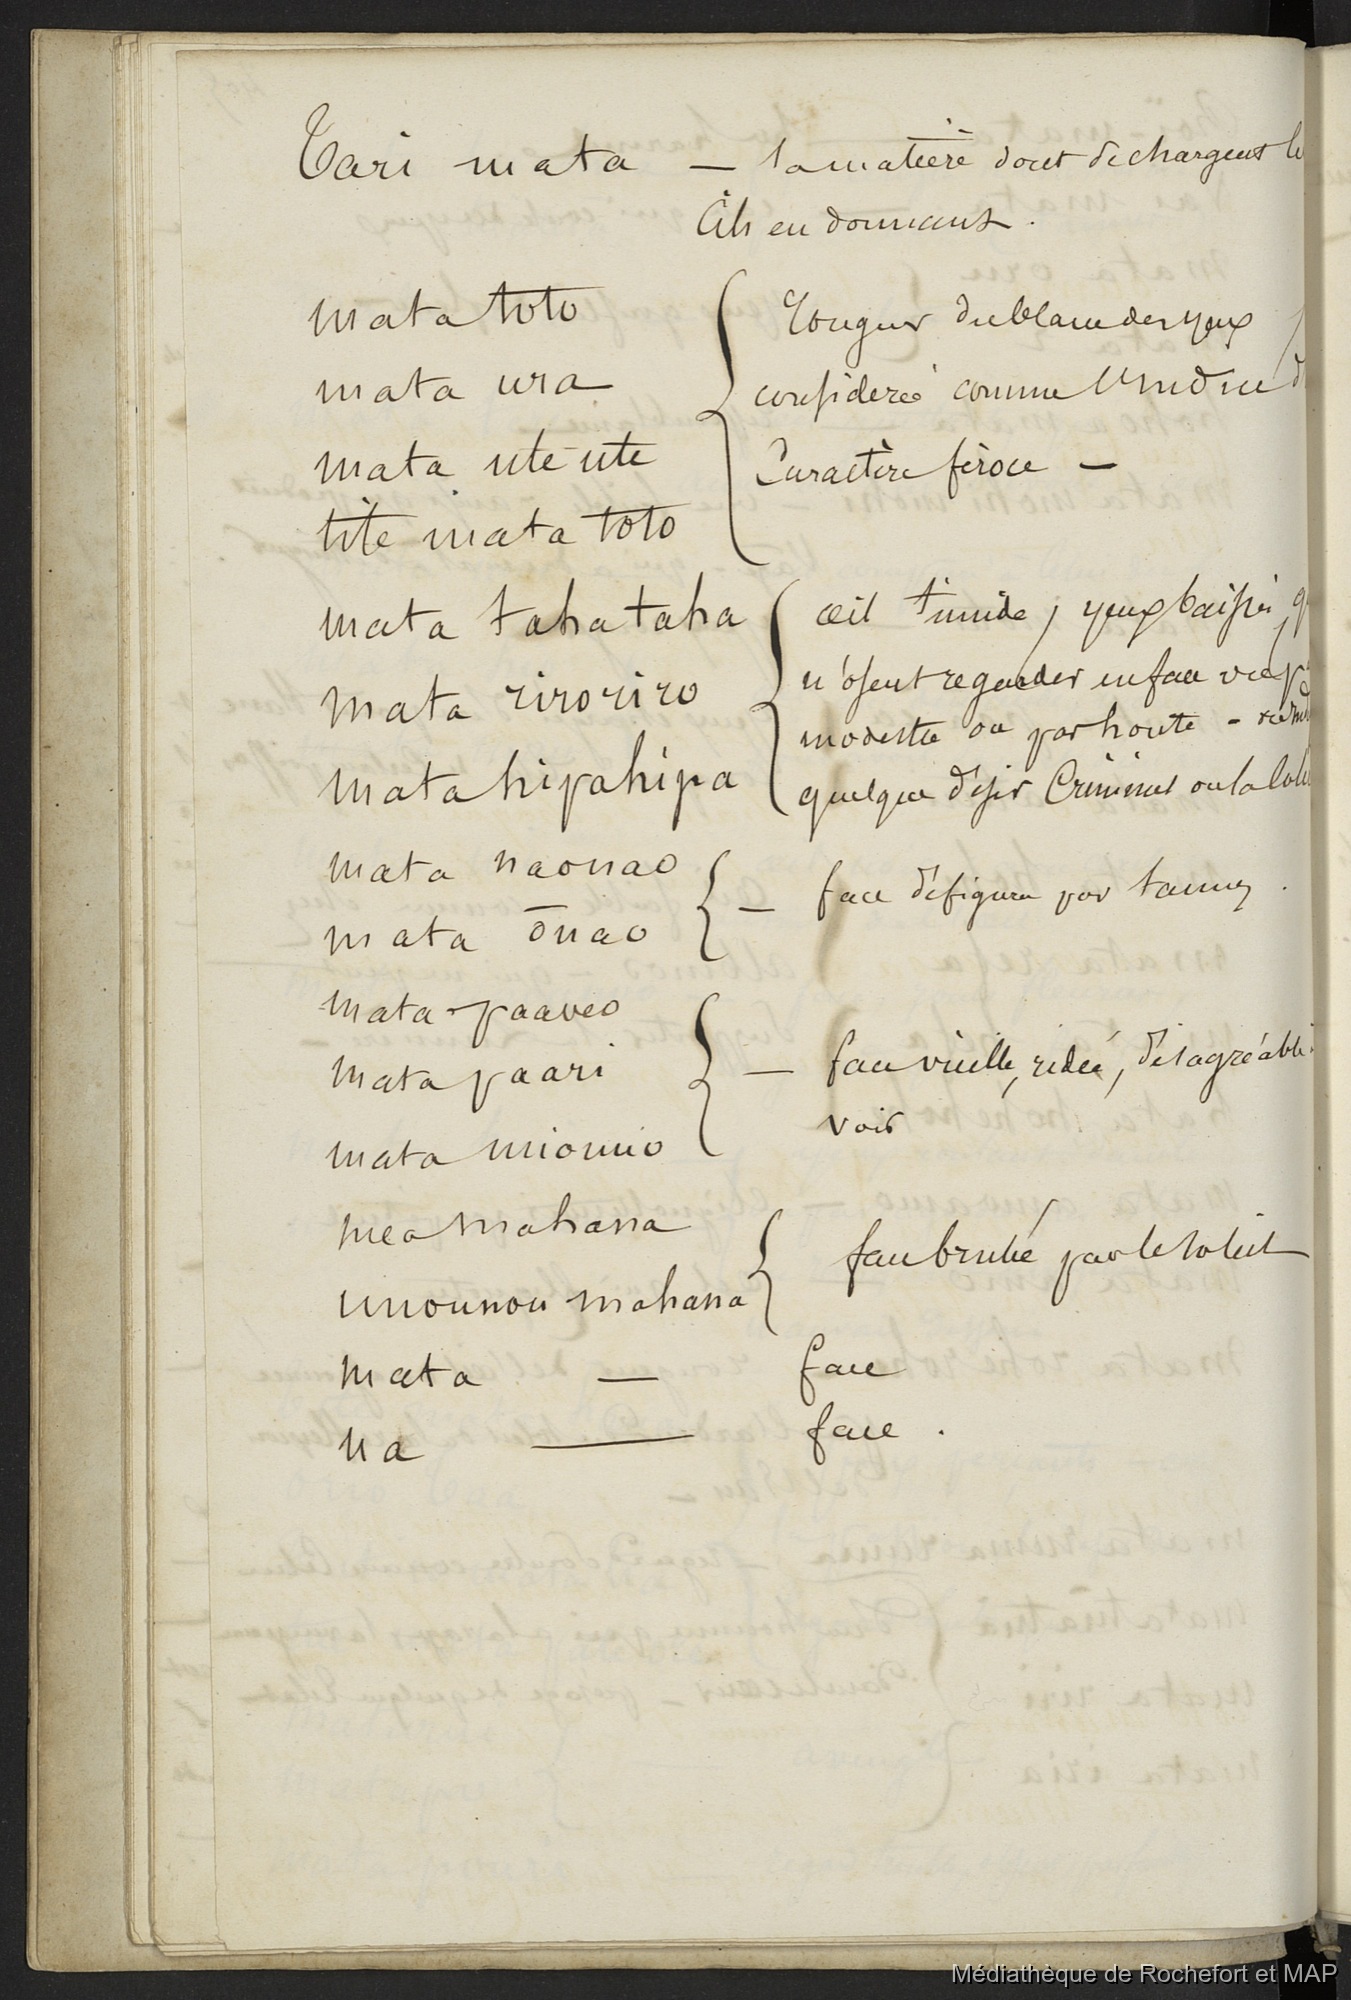 Tari mata — la matière dont se chargent le
Cils en dormant.
mata toto
mata ura
mata ute ute
tite mata toto
rougeur du blanc des yeux
considereé comme l'indice d
Caractère féroce —
mata taha taha
mata riroriro
mata hipahipa
œil timide, yeux baissés, q
n'osent regarder en face
modestie ou par honte -
quelque désir Criminel ou la
mata naonao
mata onao
— face défigurée par
mata-paaveo
mata paari
mata miomio
— face vieille, ridée, désagréable
voir
mea mahana
unounou mahana
face brulée par le soleil
mata — face
na — face.
Médiathèque de Rochefort et MAP